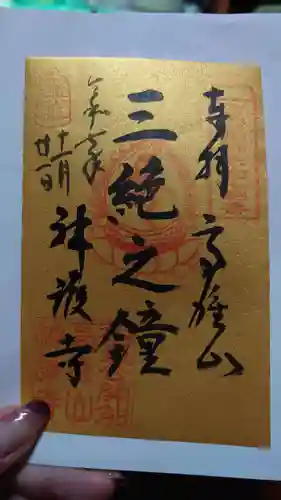 奉拝 高雄山
三絶之鐘
令和六年
十一月
廿一日
神護寺